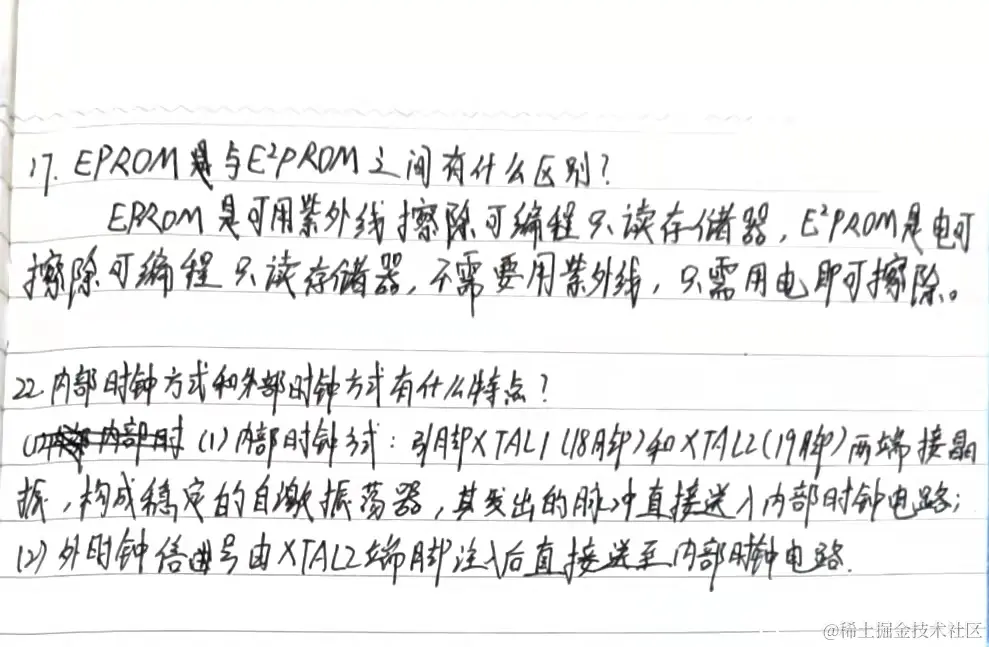 17. EPROM是与E²PROM之间有什么区别?
EPROM是可用紫外线擦除可编程只读存储器,E²PROM是电可
擦除可编程只读存储器,不需要用紫外线,只需用电即可擦除。
22.内部时钟方式和外部时钟方式有什么特点?
(1)内部时钟方式:引脚XTAL1(18脚)和XTAL2(19脚)两端接晶
振,构成稳定的自激振荡器,其发出的脉冲直接送入内部时钟电路;
(2)外时钟信号由XTAL2端脚注入后直接送至内部时钟电路.
@稀土掘金技术社区